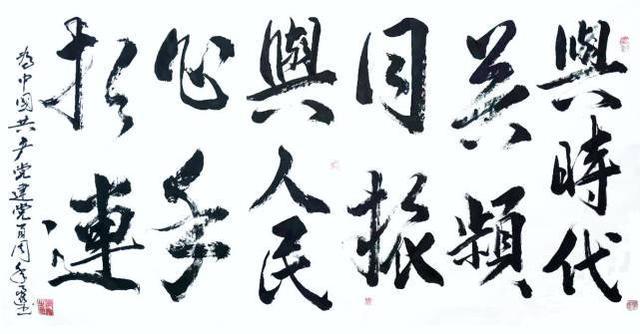 與時代
共頻
同振
與人民
心手
相連
為中國共产党建党百周年